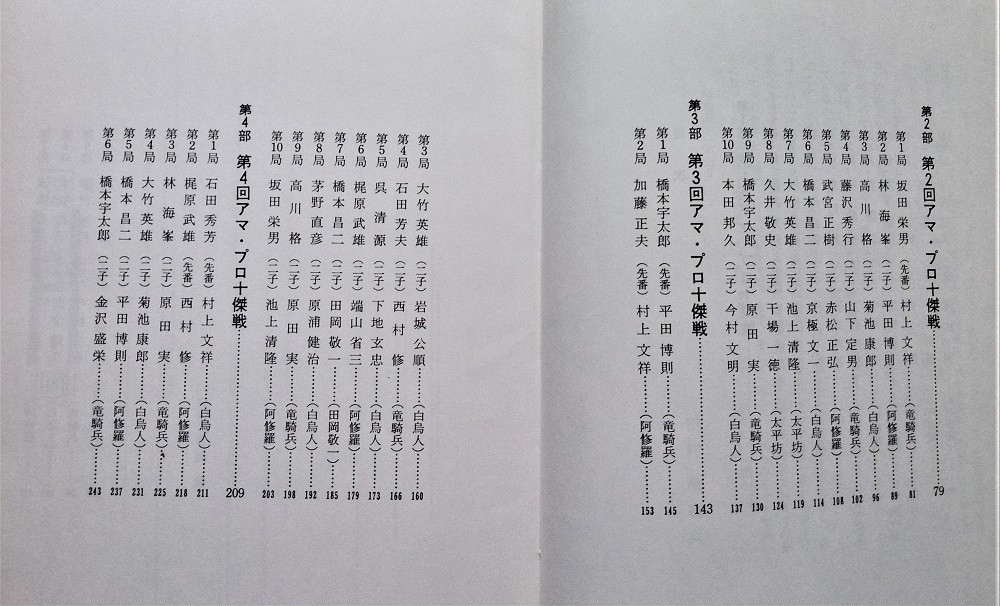 第2部 第2回アマ・プロ十傑戦……79
第1局 坂田栄男 (先番) 村上文祥……(竜騎兵)……81
第2局 林 海峯 (二子) 平田博則……(阿修羅)……89
第3局 高川 格 (二子) 菊池康郎……(白烏人)……96
第4局 藤沢秀行 (二子) 山下定男……(竜騎兵)……102
第5局 武宮正樹 (二子) 赤松正弘……(阿修羅)……108
第6局 橋本昌二 (二子) 京極文一……(白烏人)……114
第7局 大竹英雄 (二子) 池上清隆……(太平坊)……119
第8局 久井敬史 (二子) 干場一徳……(太平坊)……124
第9局 橋本宇太郎 (二子) 原田 実……(竜騎兵)……130
第10局 本田邦久 (二子) 今村文明……(白烏人)……137
第3部 第3回アマ・プロ十傑戦……143
第1局 橋本宇太郎 (先番) 平田博則……(竜騎兵)……145
第2局 加藤正夫 (先番) 村上文祥……(阿修羅)……153
第3局 大竹英雄 (二子) 岩城公順……(白烏人)……160
第4局 石田芳夫 (二子) 西村 修……(竜騎兵)……166
第5局 呉 清源 (二子) 下地玄忠……(白烏人)……173
第6局 梶原武雄 (二子) 端山省三……(阿修羅)……179
第7局 橋本昌二 (二子) 田岡敬一……(田岡敬一)……185
第8局 茅野直彦 (二子) 原浦健治……(白烏人)……192
第9局 高川 格 (二子) 原田 実……(竜騎兵)……198
第10局 坂田栄男 (二子) 池上清隆……(阿修羅)……203
第4部 第4回アマ・プロ十傑戦……209
第1局 石田秀芳 (先番) 村上文祥……(白烏人)……211
第2局 梶原武雄 (先番) 西村 修……(阿修羅)……218
第3局 林 海峯 (二子) 原田 実……(竜騎兵)……225
第4局 大竹英雄 (二子) 菊池康郎……(白烏人)……231
第5局 橋本昌二 (二子) 平田博則……(阿修羅)……237
第6局 橋本宇太郎 (二子) 金沢盛栄……(竜騎兵)……243